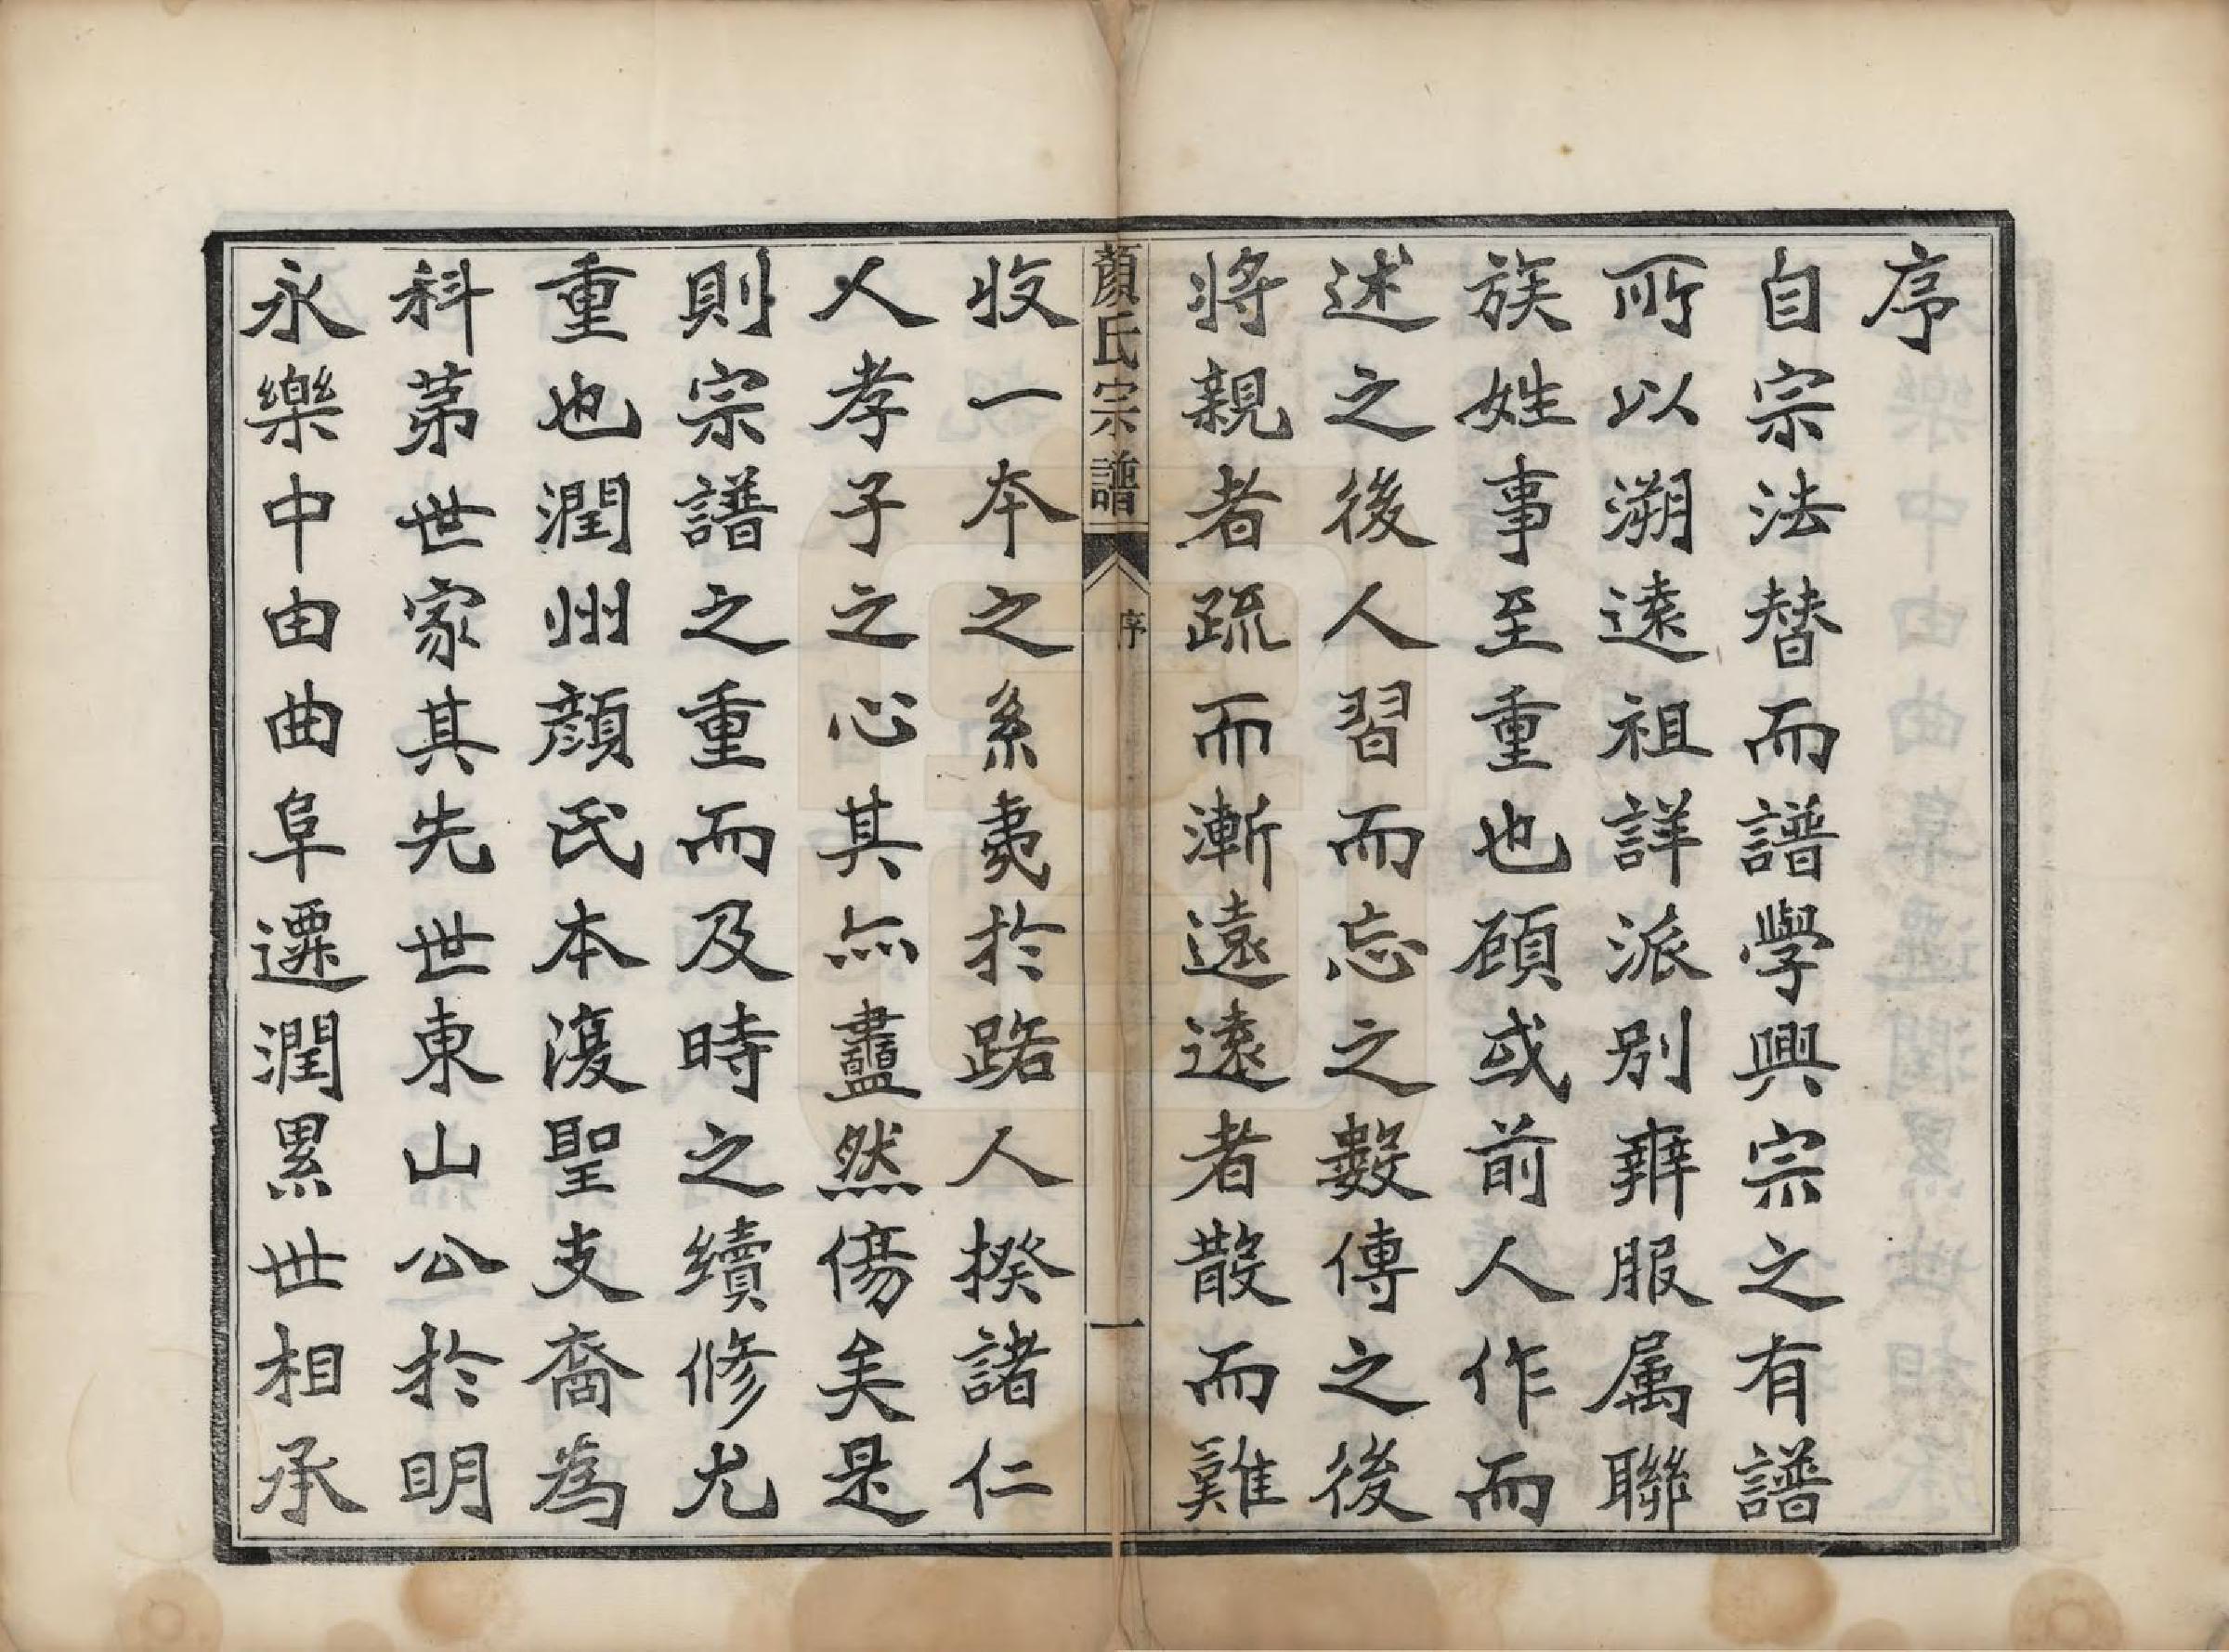 序
自宗法替而譜學興宗之有譜
所以溯遠祖詳派别辨服属聯
族姓事至重也顧或前人作而
述之後人習而忘之數傳之後
將親者疏而漸遠遠者散而難
顏氏宗譜
序
一
收一本之系夷於路人揆諸仁
人孝子之心其亦衋然傷矣是
則宗譜之重而及時之續修尤
重也潤州顏氏本復聖支裔為
科苐世家其先世東山公於明
永樂中由曲阜遷潤累世相承